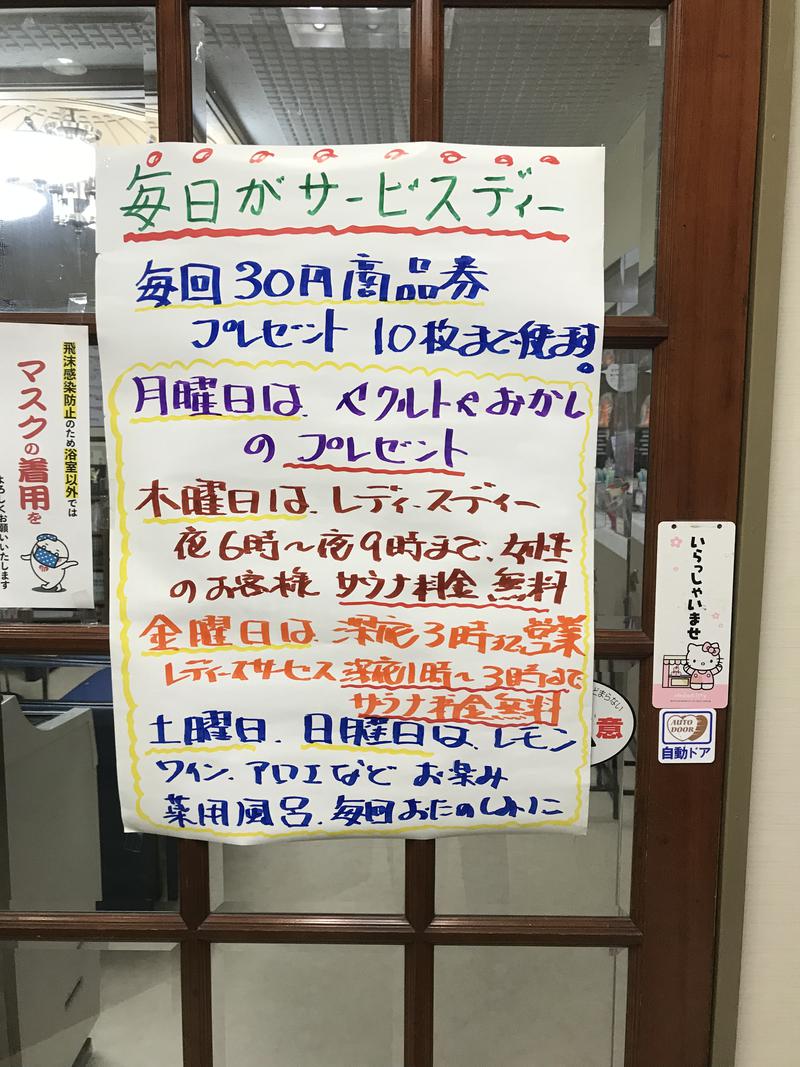 毎日がサービスディー
毎回30円商品券
プレゼント 10枚まで使えます。
月曜日は、ヤクルトやおかし
の プレゼント
木曜日は、レディースディー
夜6時～夜9時まで、女性
のお客様 サウナ料金 無料
金曜日は 深夜3時まで営業
レディースサービス 深夜1時～3時まで
サウナ料金無料
土曜日、日曜日は、レモン
ワイン、アロエなど お楽み
薬用風呂、毎回おたのしみに
飛沫感染防止のため浴室以外では
マスクの着用を
よろしくお願いいたします
いらっしゃいませ
AUTO DOOR
自動ドア
とまらない
意